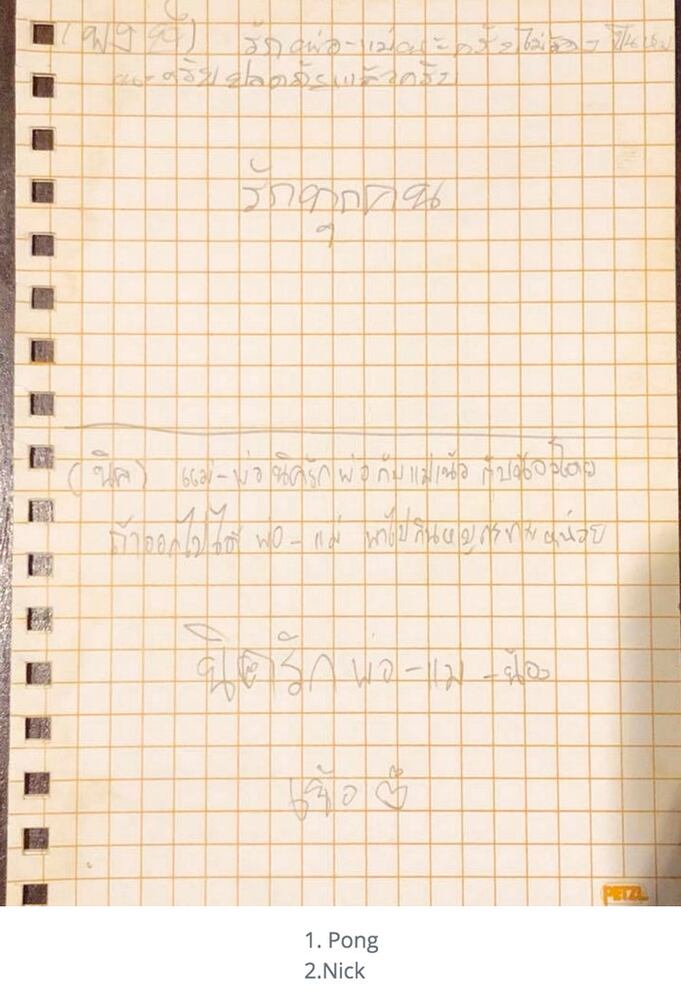 (พงษ์) รักพ่อ-แม่นะครับไม่ต้อง
นะครับปลอดภัยแล้วครับ
รักทุกคน
(นิค) แม่-พ่อ นิครักพ่อกับแม่ กับน้อง
ถ้าออกไปได้ พ่อ-แม่ พาไปกินหมูกระทะหน่อย
นิครักพ่อ-แม่-น้อง
PETZL
1. Pong
2.Nick